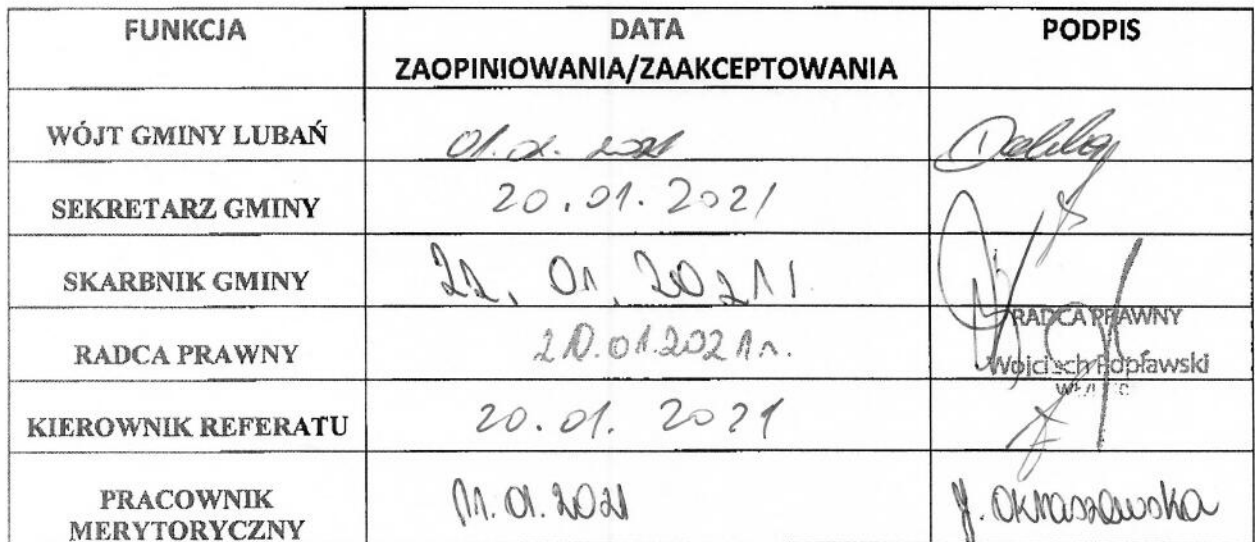 FUNKCJA DATA PODPIS
ZAOPINIOWANIA/ZAAKCEPTOWANIA
WÓJT GMINY LUBAŃ 2021
SEKRETARZ GMINY 20.01.2021
SKARBNIK GMINY 22.01.2021
RADCA PRAWNY 20.01.2021r. RADCA PRAWNY
Wojciech Popławski
KIEROWNIK REFERATU 20.01.2021
PRACOWNIK
MERYTORYCZNY 11.01.2021 J. Okraszewska